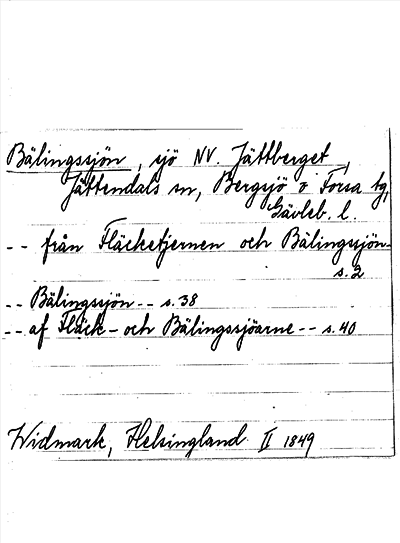 Bälingssjön, sjö NV. Jättberget,
Jättendals sn, Bergsjö o Forsa tg,
Gävleb. l.
-- från Fläcketjernen och Bälingssjön--
s. 2
-- Bälingssjön -- s. 38
-- af Fläck- och Bälingssjöarne -- s. 40
Widmark, Helsingland II 1849